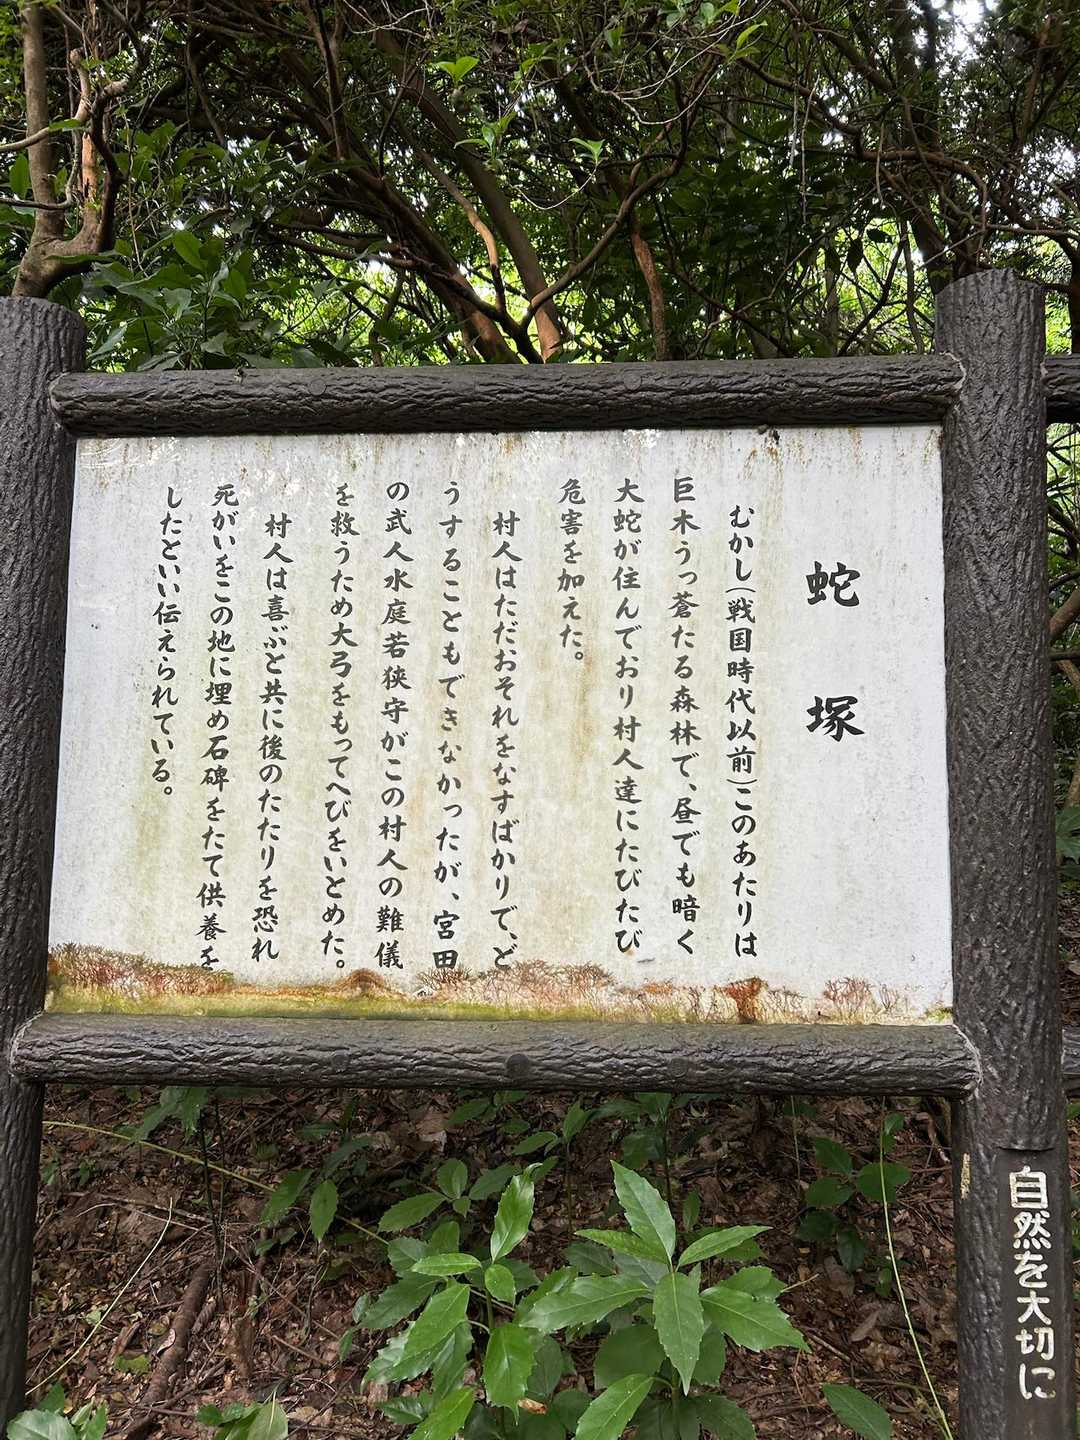 蛇塚
むかし(戦国時代以前)このあたりは
巨木うっ蒼たる森林で、昼でも暗く
大蛇が住んでおり村人達にたびたび
危害を加えた。
村人はただおそれをなすばかりで、ど
うすることもできなかったが、宮田
の武人水庭若狭守がこの村人の難儀
を救うため大弓をもってへびをいとめた。
村人は喜ぶと共に後のたたりを恐れ
死がいをこの地に埋め石碑をたて供養を
したといい伝えられている。
自然を大切に